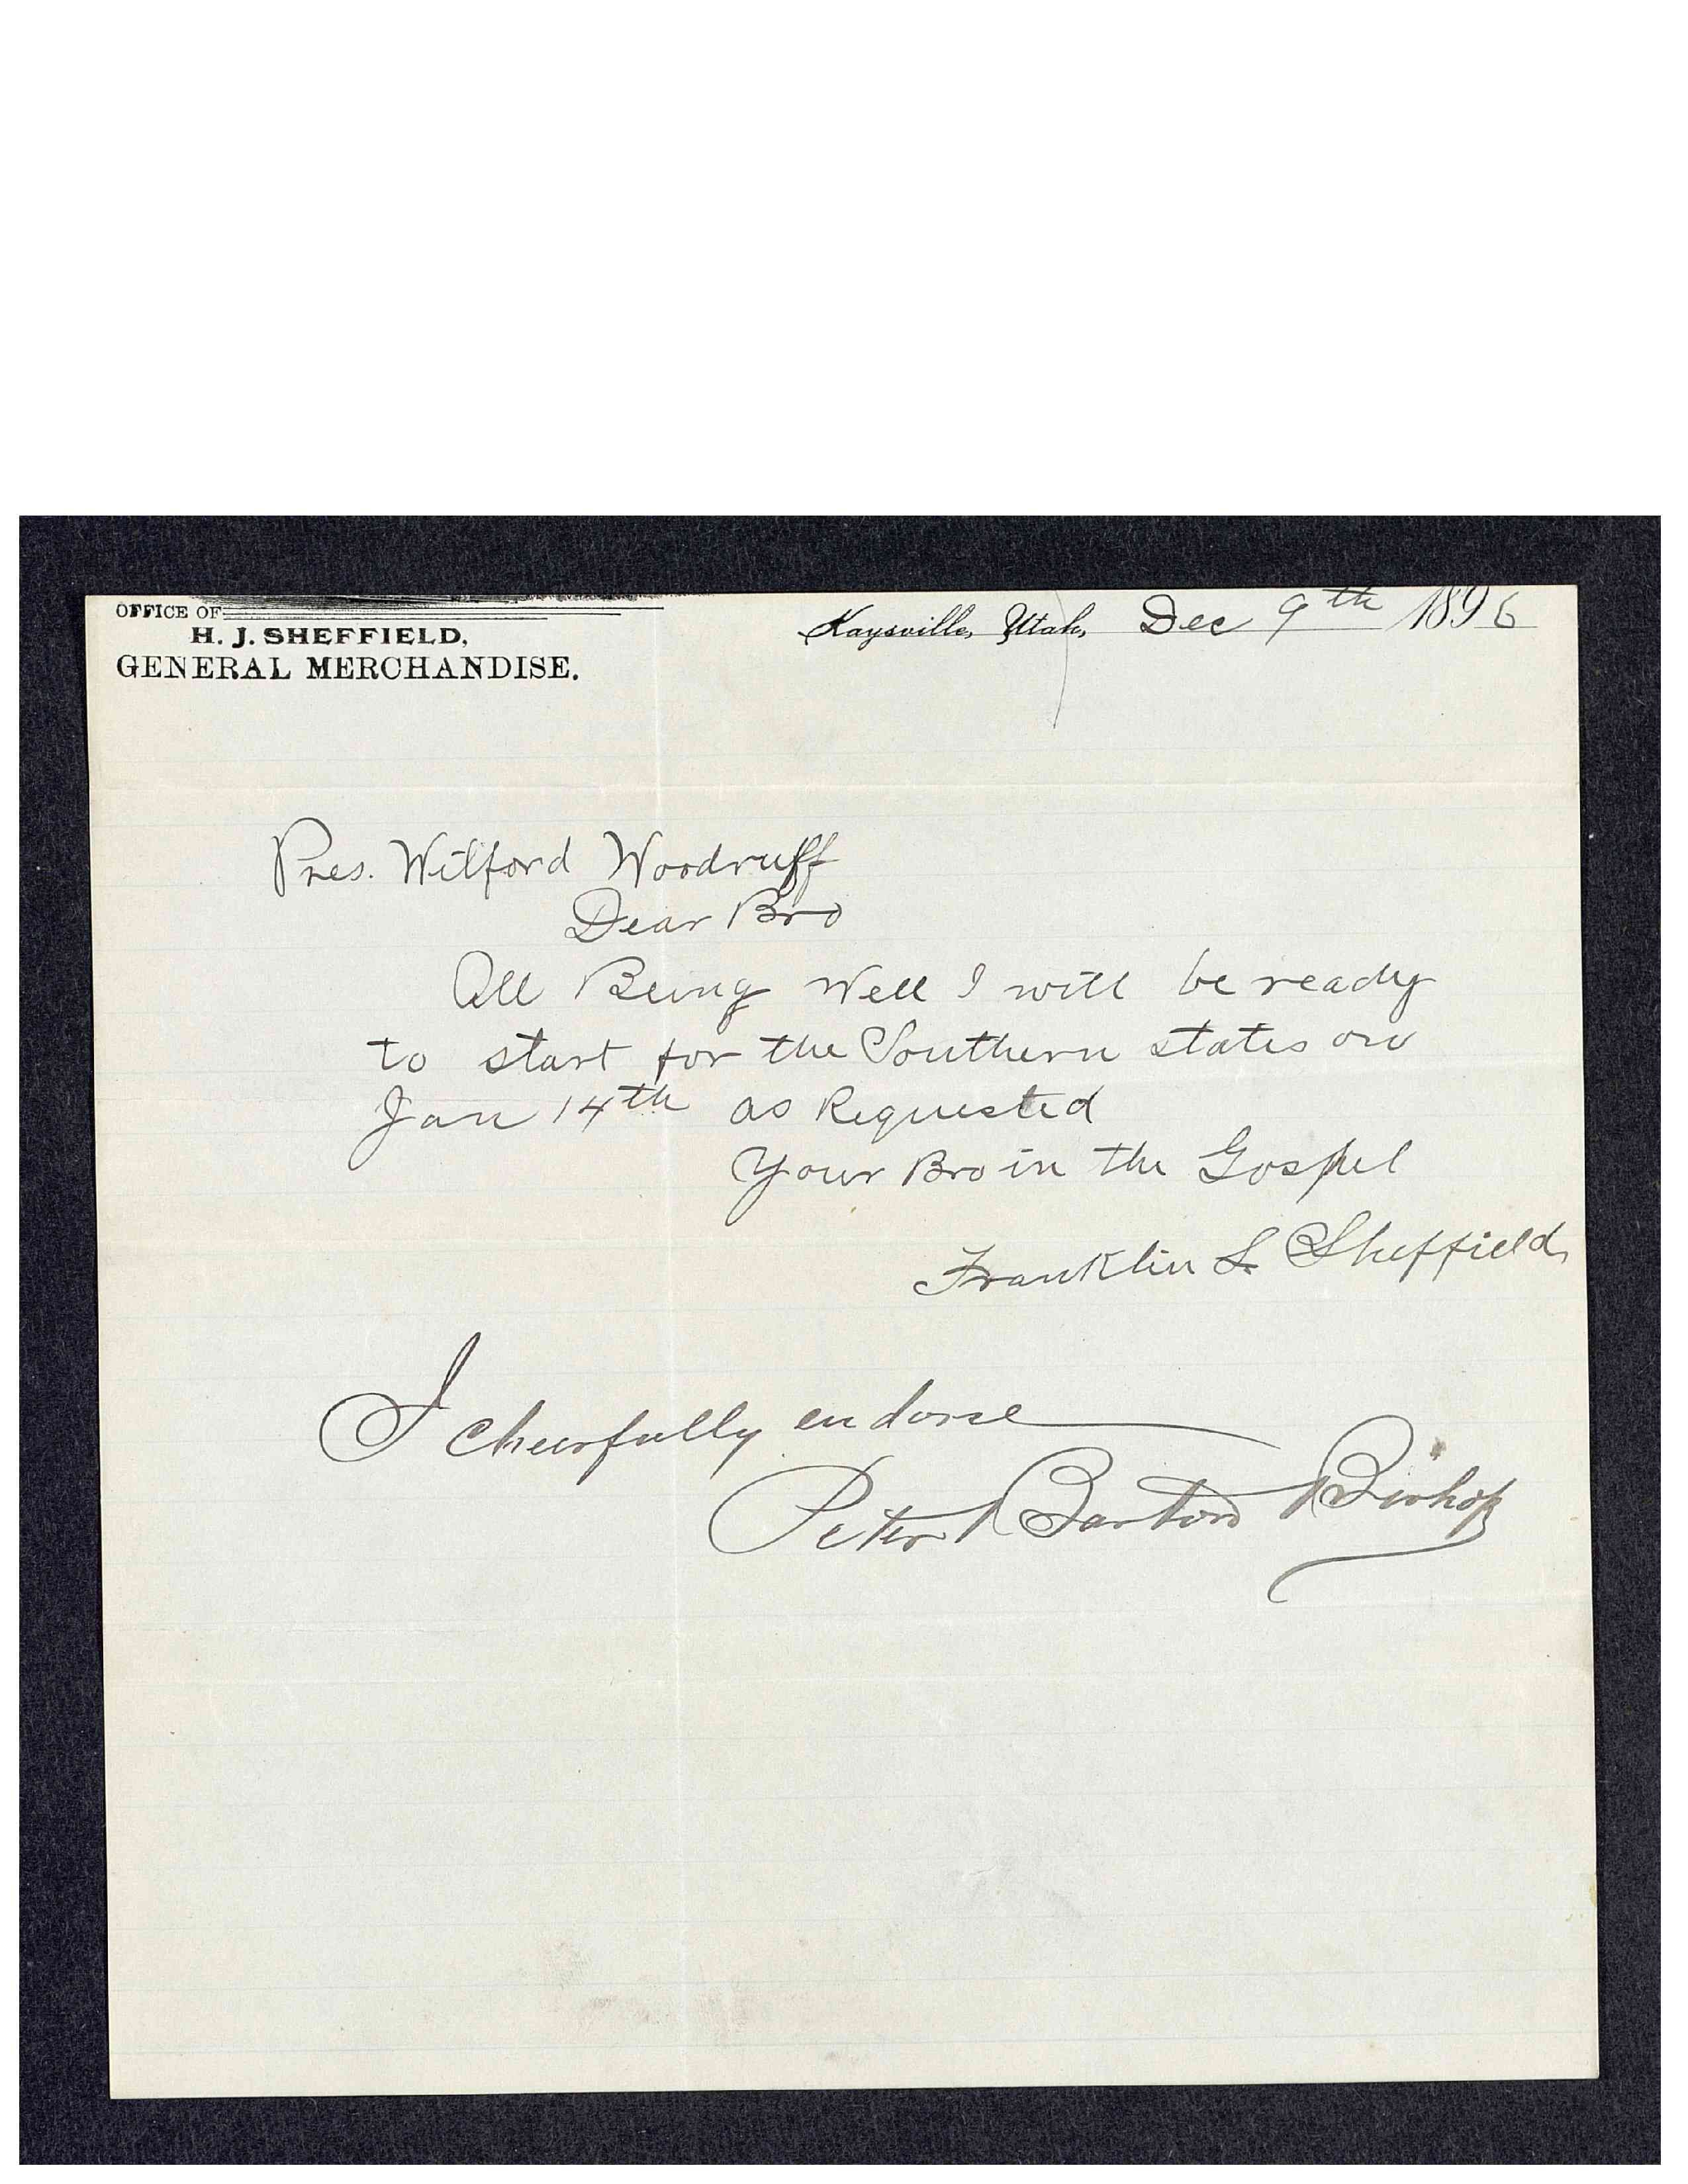 OFFICE OF
H. J. SHEFFIELD,
GENERAL MERCHANDISE.
Kaysville, Utah, Dec 9th 1896
Pres. Wilford Woodruff
Dear Bro
All Being Well I will be ready
to start for the Southern states on
Jan 14th as Requested
Your Bro in the Gospel
Franklin S. Sheffield
I cheerfully endorse
Peter Barton Bishop